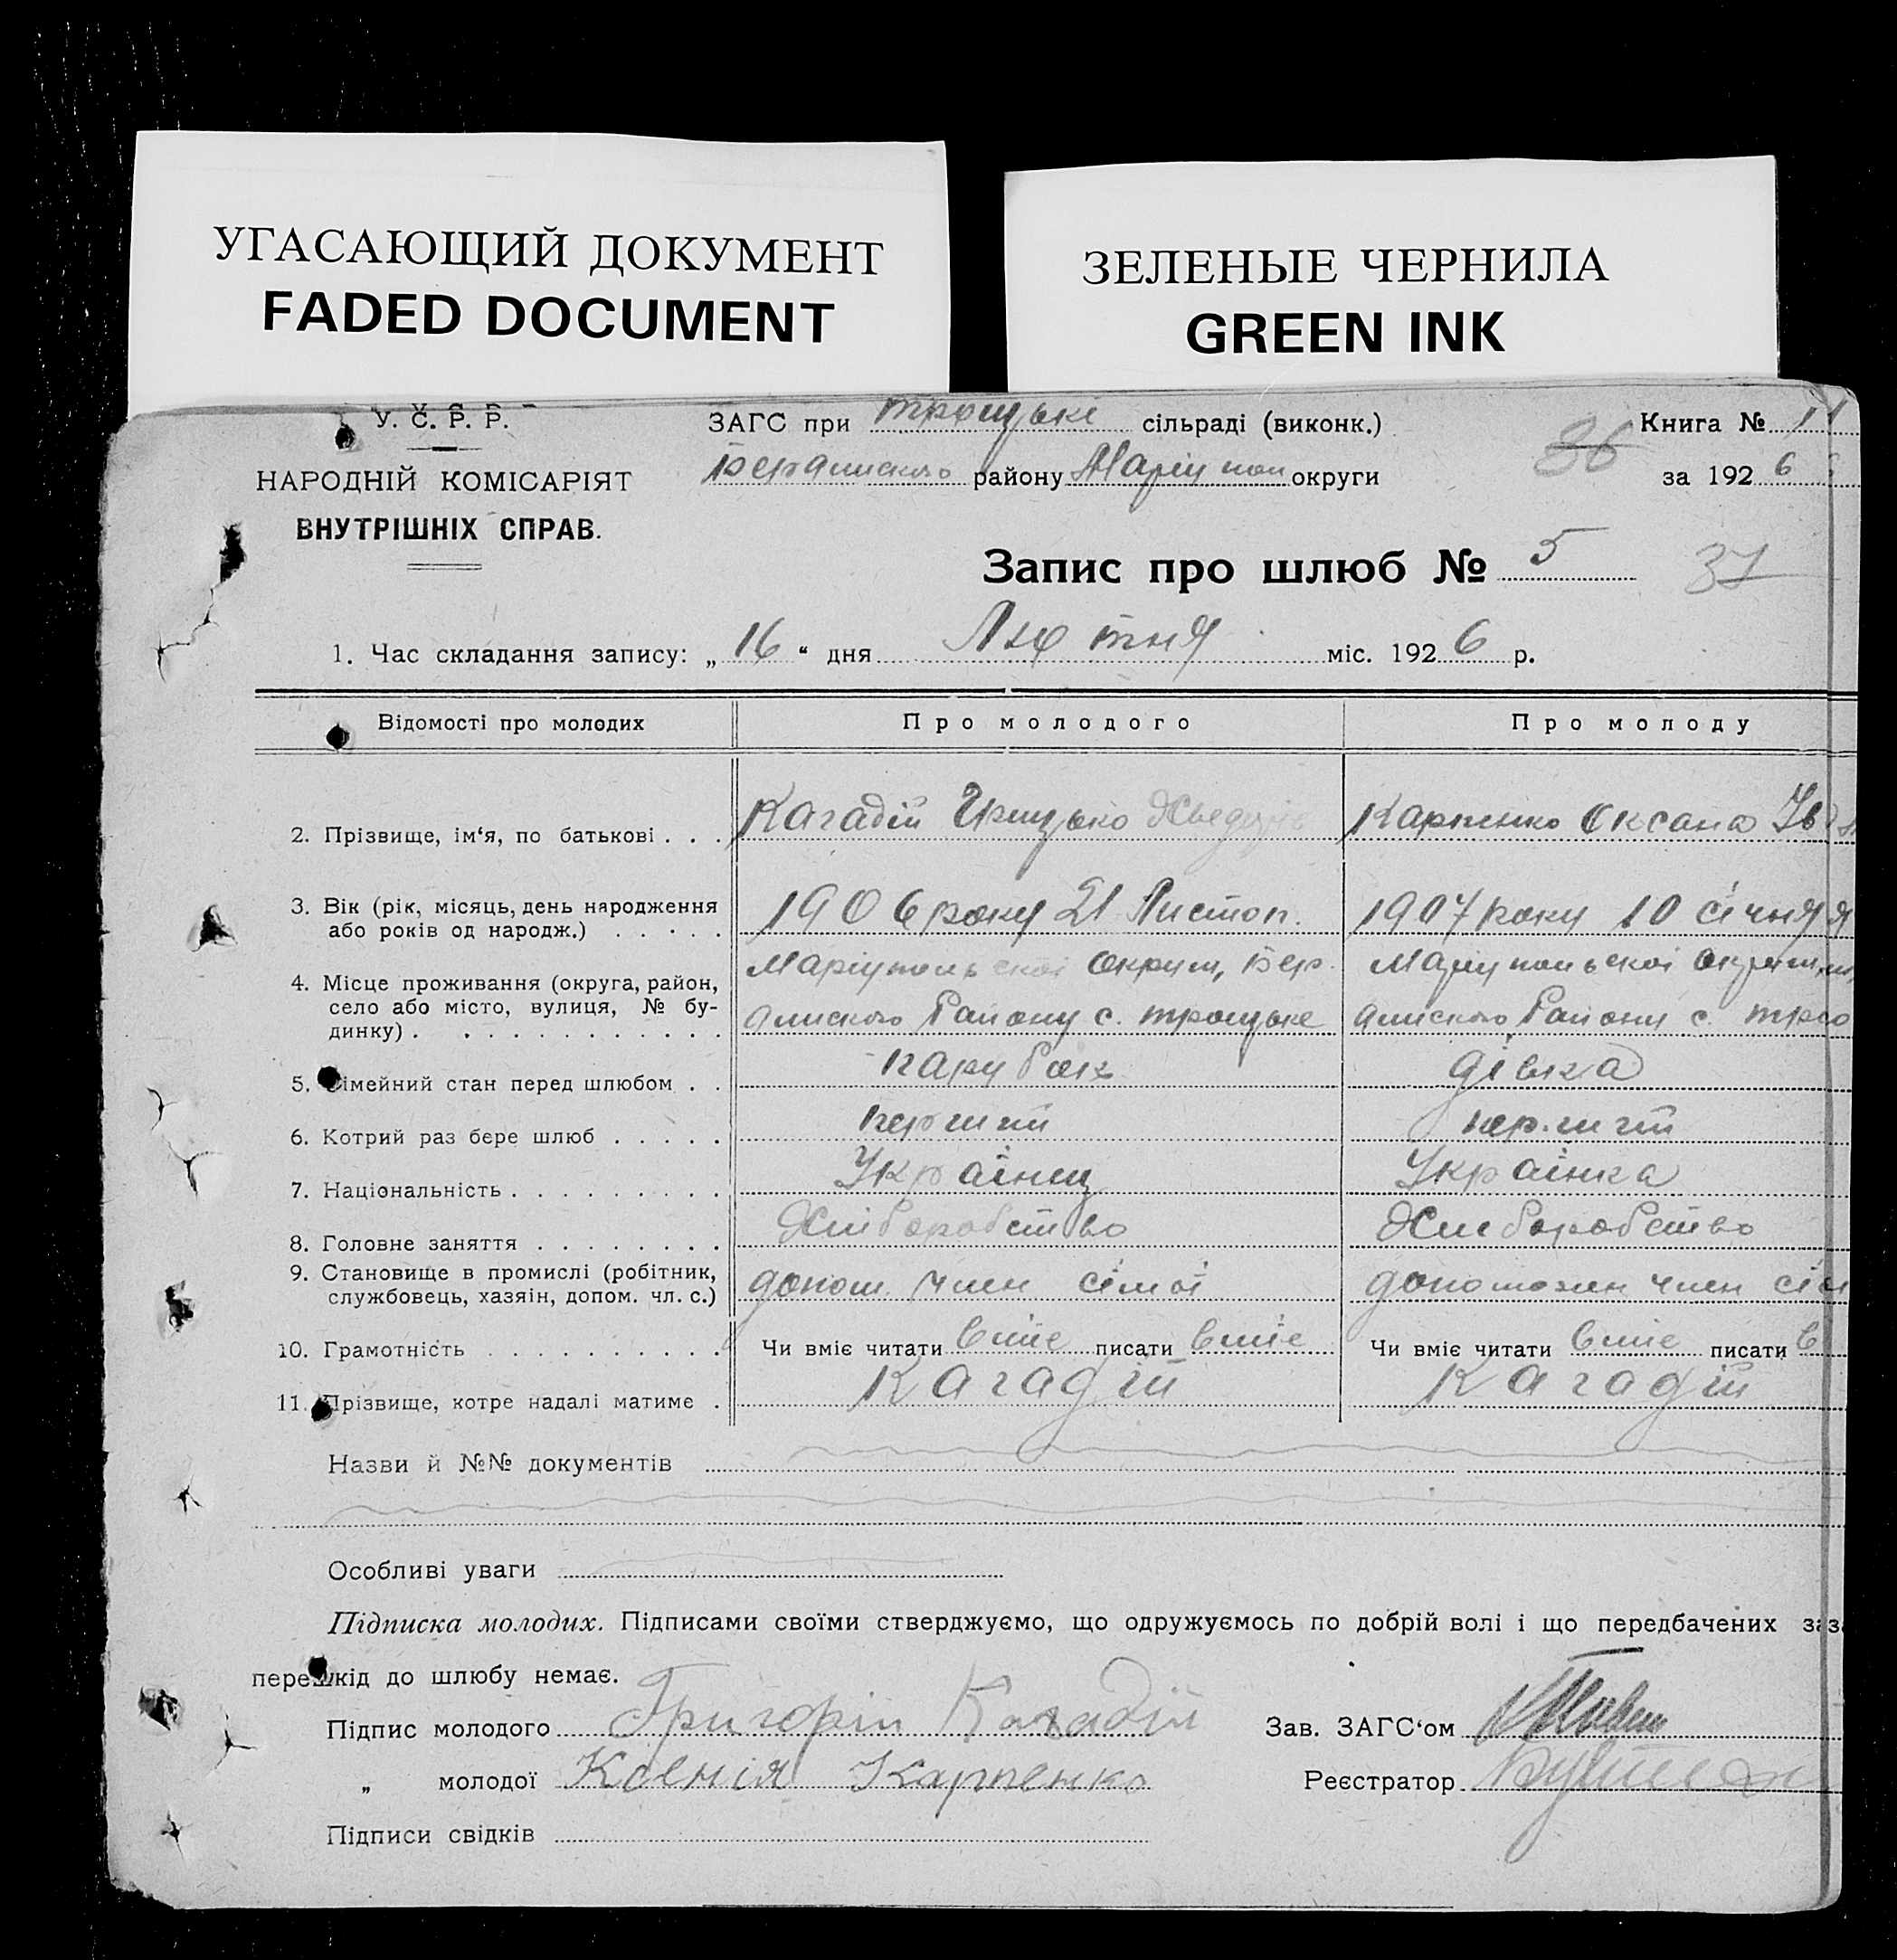 УГАСАЮЩИЙ ДОКУМЕНТ
FADED DOCUMENT
ЗЕЛЕНЫЕ ЧЕРНИЛА
GREEN INK
У. С. Р. Р.
НАРОДНІЙ КОМІСАРІЯТ
ВНУТРІШНІХ СПРАВ.
ЗАГС при троцькі сільраді (виконк.)
района Маріупол округи
Книга № 11
за 1926
36
Запис про шлюб № 5
37
1. Час складання запису: „16“ дня Лютня міс. 1926 р.
Відомості про молодих Про молодого Про молоду
2. Прізвище, ім‘я, по батькові . . . Кагадій Грицько Карпенко Оксана Ів
3. Вік (рік, місяць, день народження
або років од народж.) . . . . . 1906 року 21 Листоп. 1907 року 10 січня
4. Місце проживання (округа, район,
село або місто, вулиця, № бу-
динку) . . . . . . . . . . . .
Маріупольскоі Округи, Бер- Маріупольскоі Округи,
дянского Району с. троцьке дянского Району с. тро
5. Сімейний стан перед шлюбом . . парубок дівка
6. Котрий раз бере шлюб . . . . . перший перший
7. Національність . . . . . . . . . Украінец Украінка
8. Головне заняття . . . . . . . . Хліборобство Хлиборобство
9. Становище в промислі (робітник,
службовець, хазяін, допом. чл. с.) допом. член сімоі допоможен член сім
10. Грамотність . . . . . . . . . . Чи вміє читати вміє писати вміє Чи вміє читати вміє писати в
11. Прізвище, котре надалі матиме . Кагадій Кагадій
Назви й №№ документів
Особливі уваги
Підписка молодих. Підписами своїми стверджуємо, що одружуємось по добрій волі і що передбачених за
перешкід до шлюбу немає.
Підпис молодого Григорій Кагадій Зав. ЗАГС‘ом
„ молодої Ксенія Карпенко Реєстратор
Підписи свідків